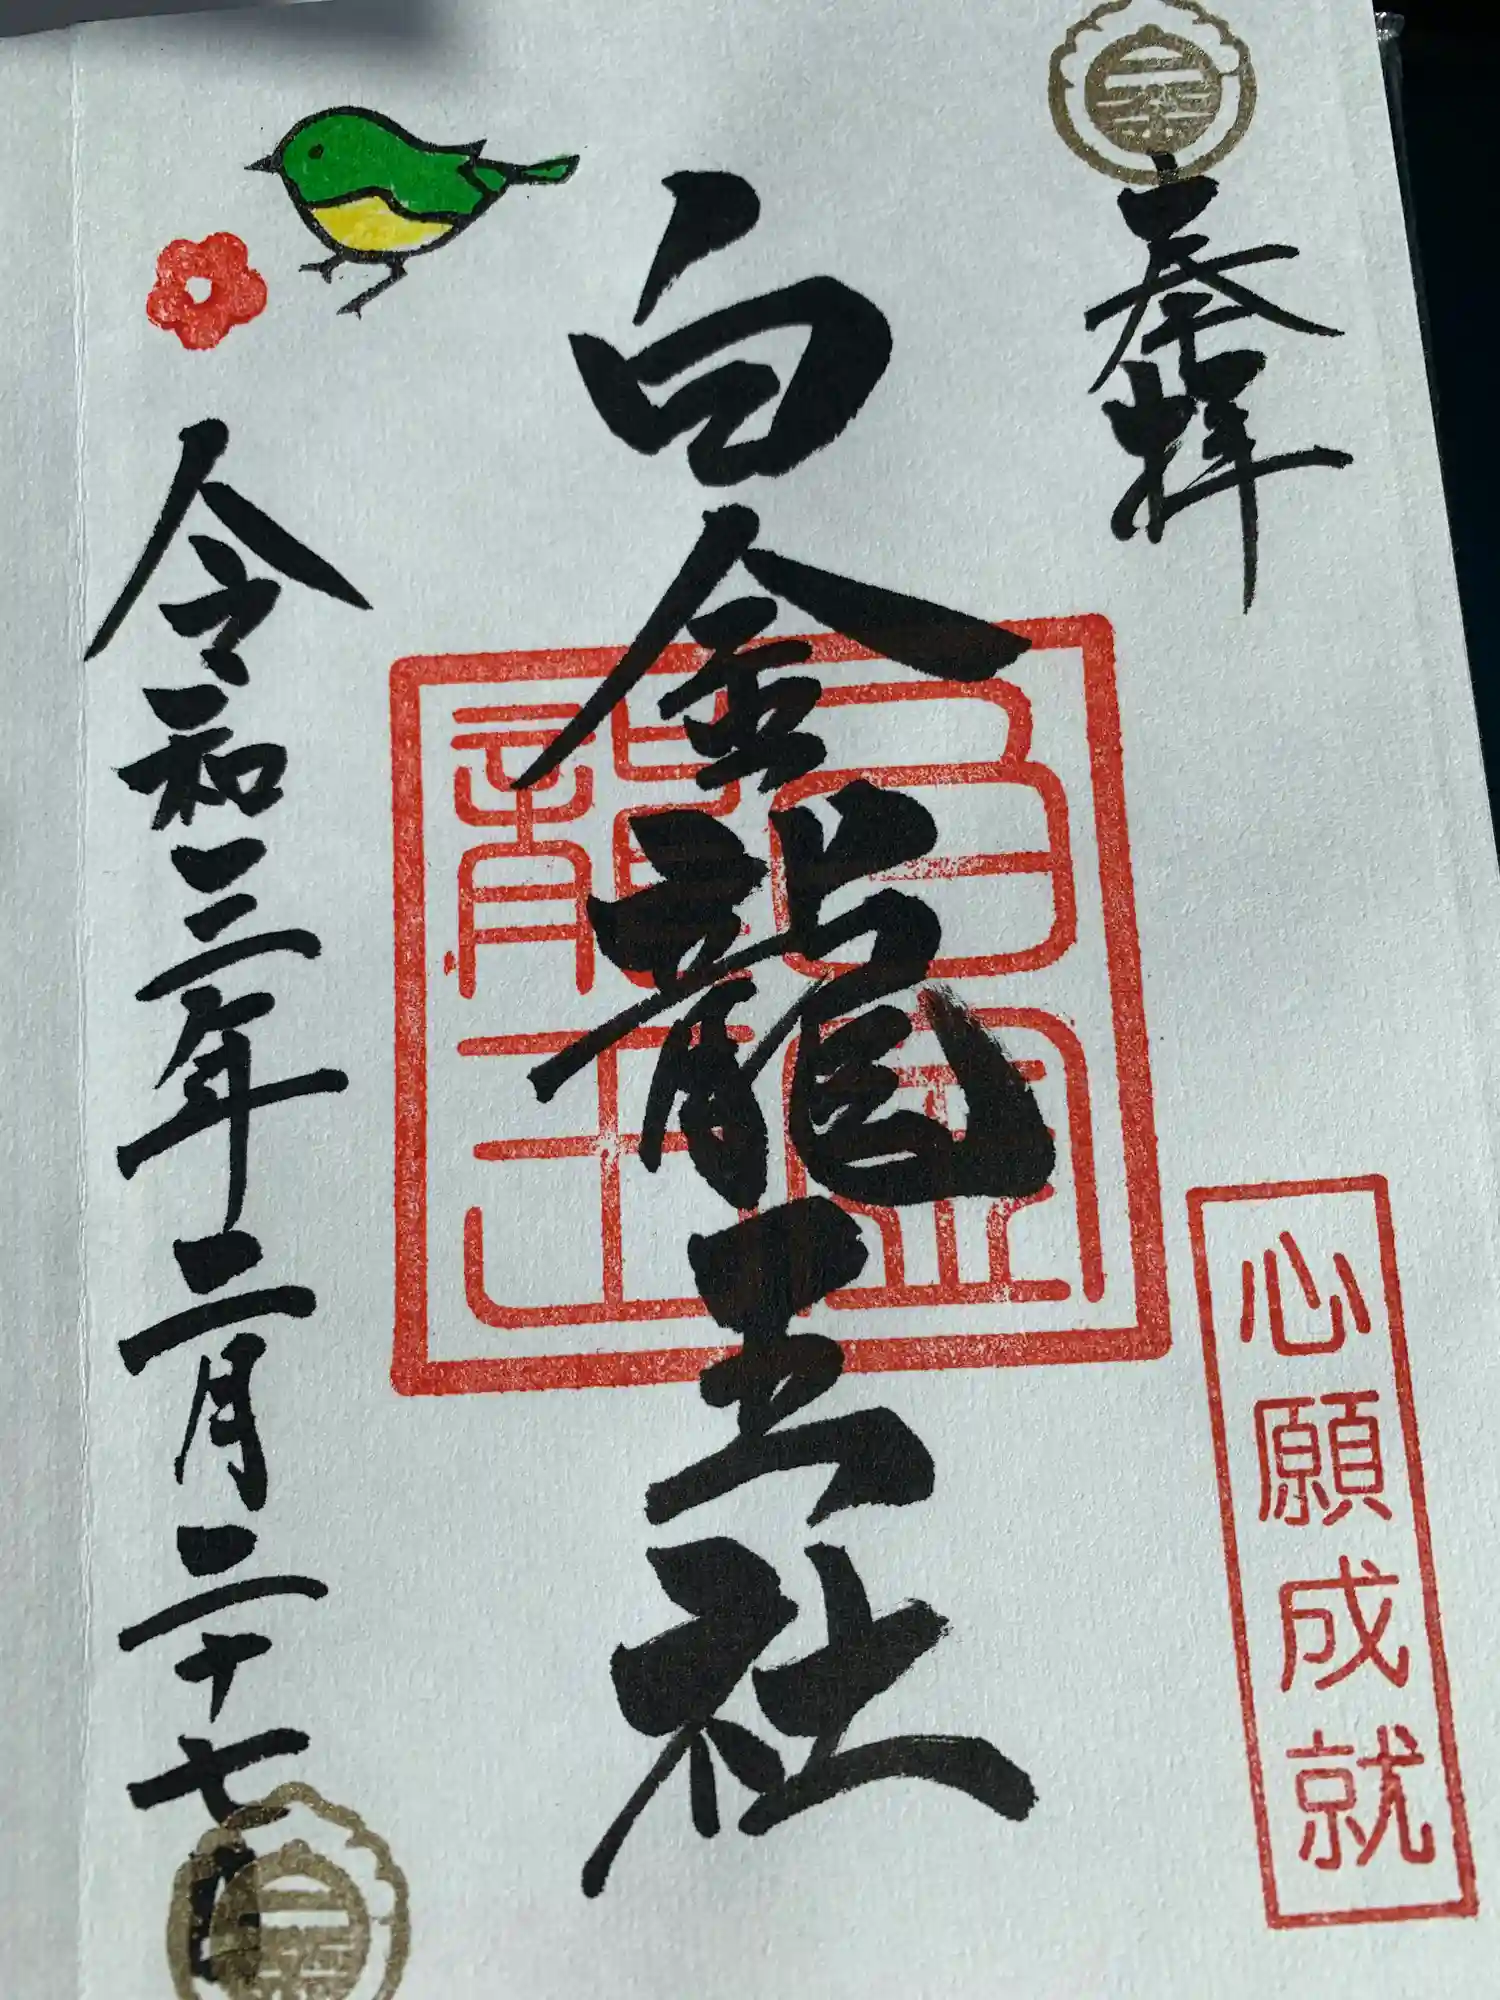 奉拝
心願成就
白金龍王社
白金龍王
令和三年二月二十七日